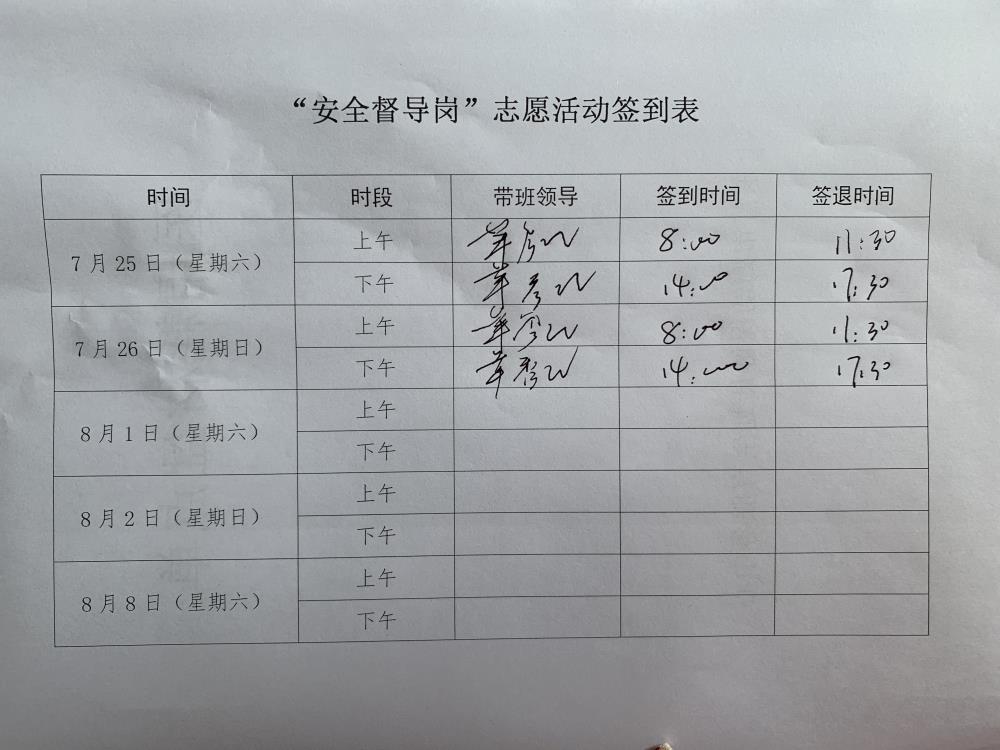 “安全督导岗”志愿活动签到表
时间 时段 带班领导 签到时间 签退时间
7月25日（星期六） 上午 8:00 11:30
下午 14:00 17:30
7月26日（星期日） 上午 8:00 11:30
下午 14:00 17:30
8月1日（星期六） 上午
下午
8月2日（星期日） 上午
下午
8月8日（星期六） 上午
下午